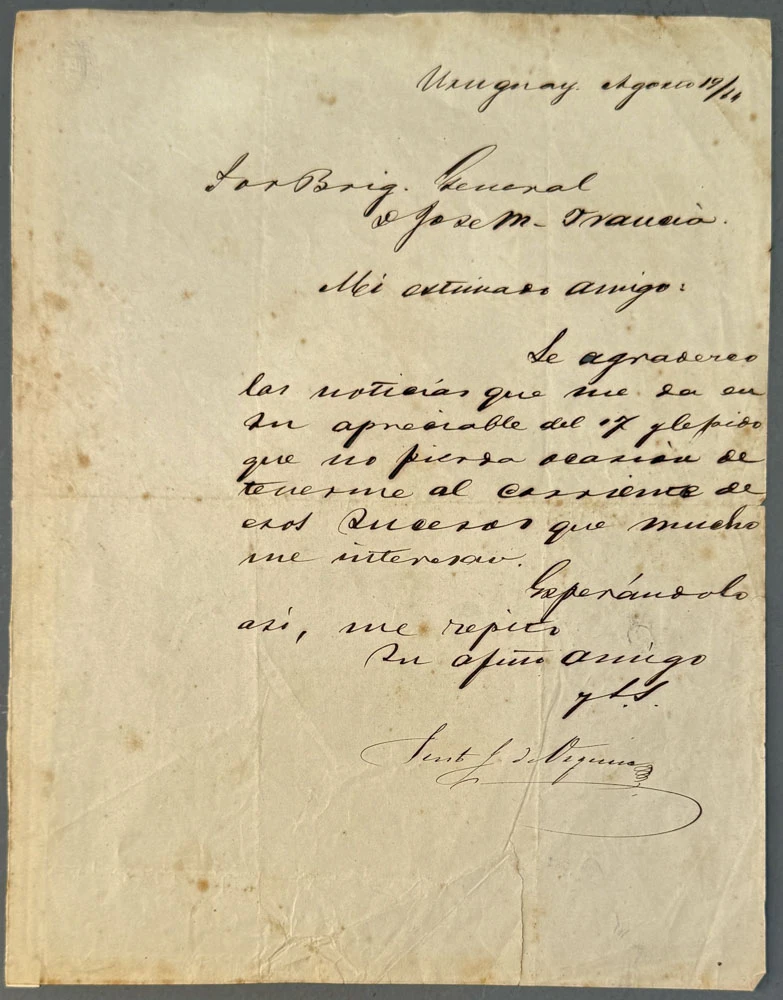 Uruguay. Agosto 19/
Sor Brig. General
D José M- Francia.
Mi estimado amigo:
Le agradezco
las noticias que me da en
su apreciable del 17 y le pido
que no pierda ocasión de
tenerme al corriente de
esos sucesos que mucho
me interesan.
Esperándolo
así, me repito
Su afmo amigo
y S.S.
Justo J. de Urquiza